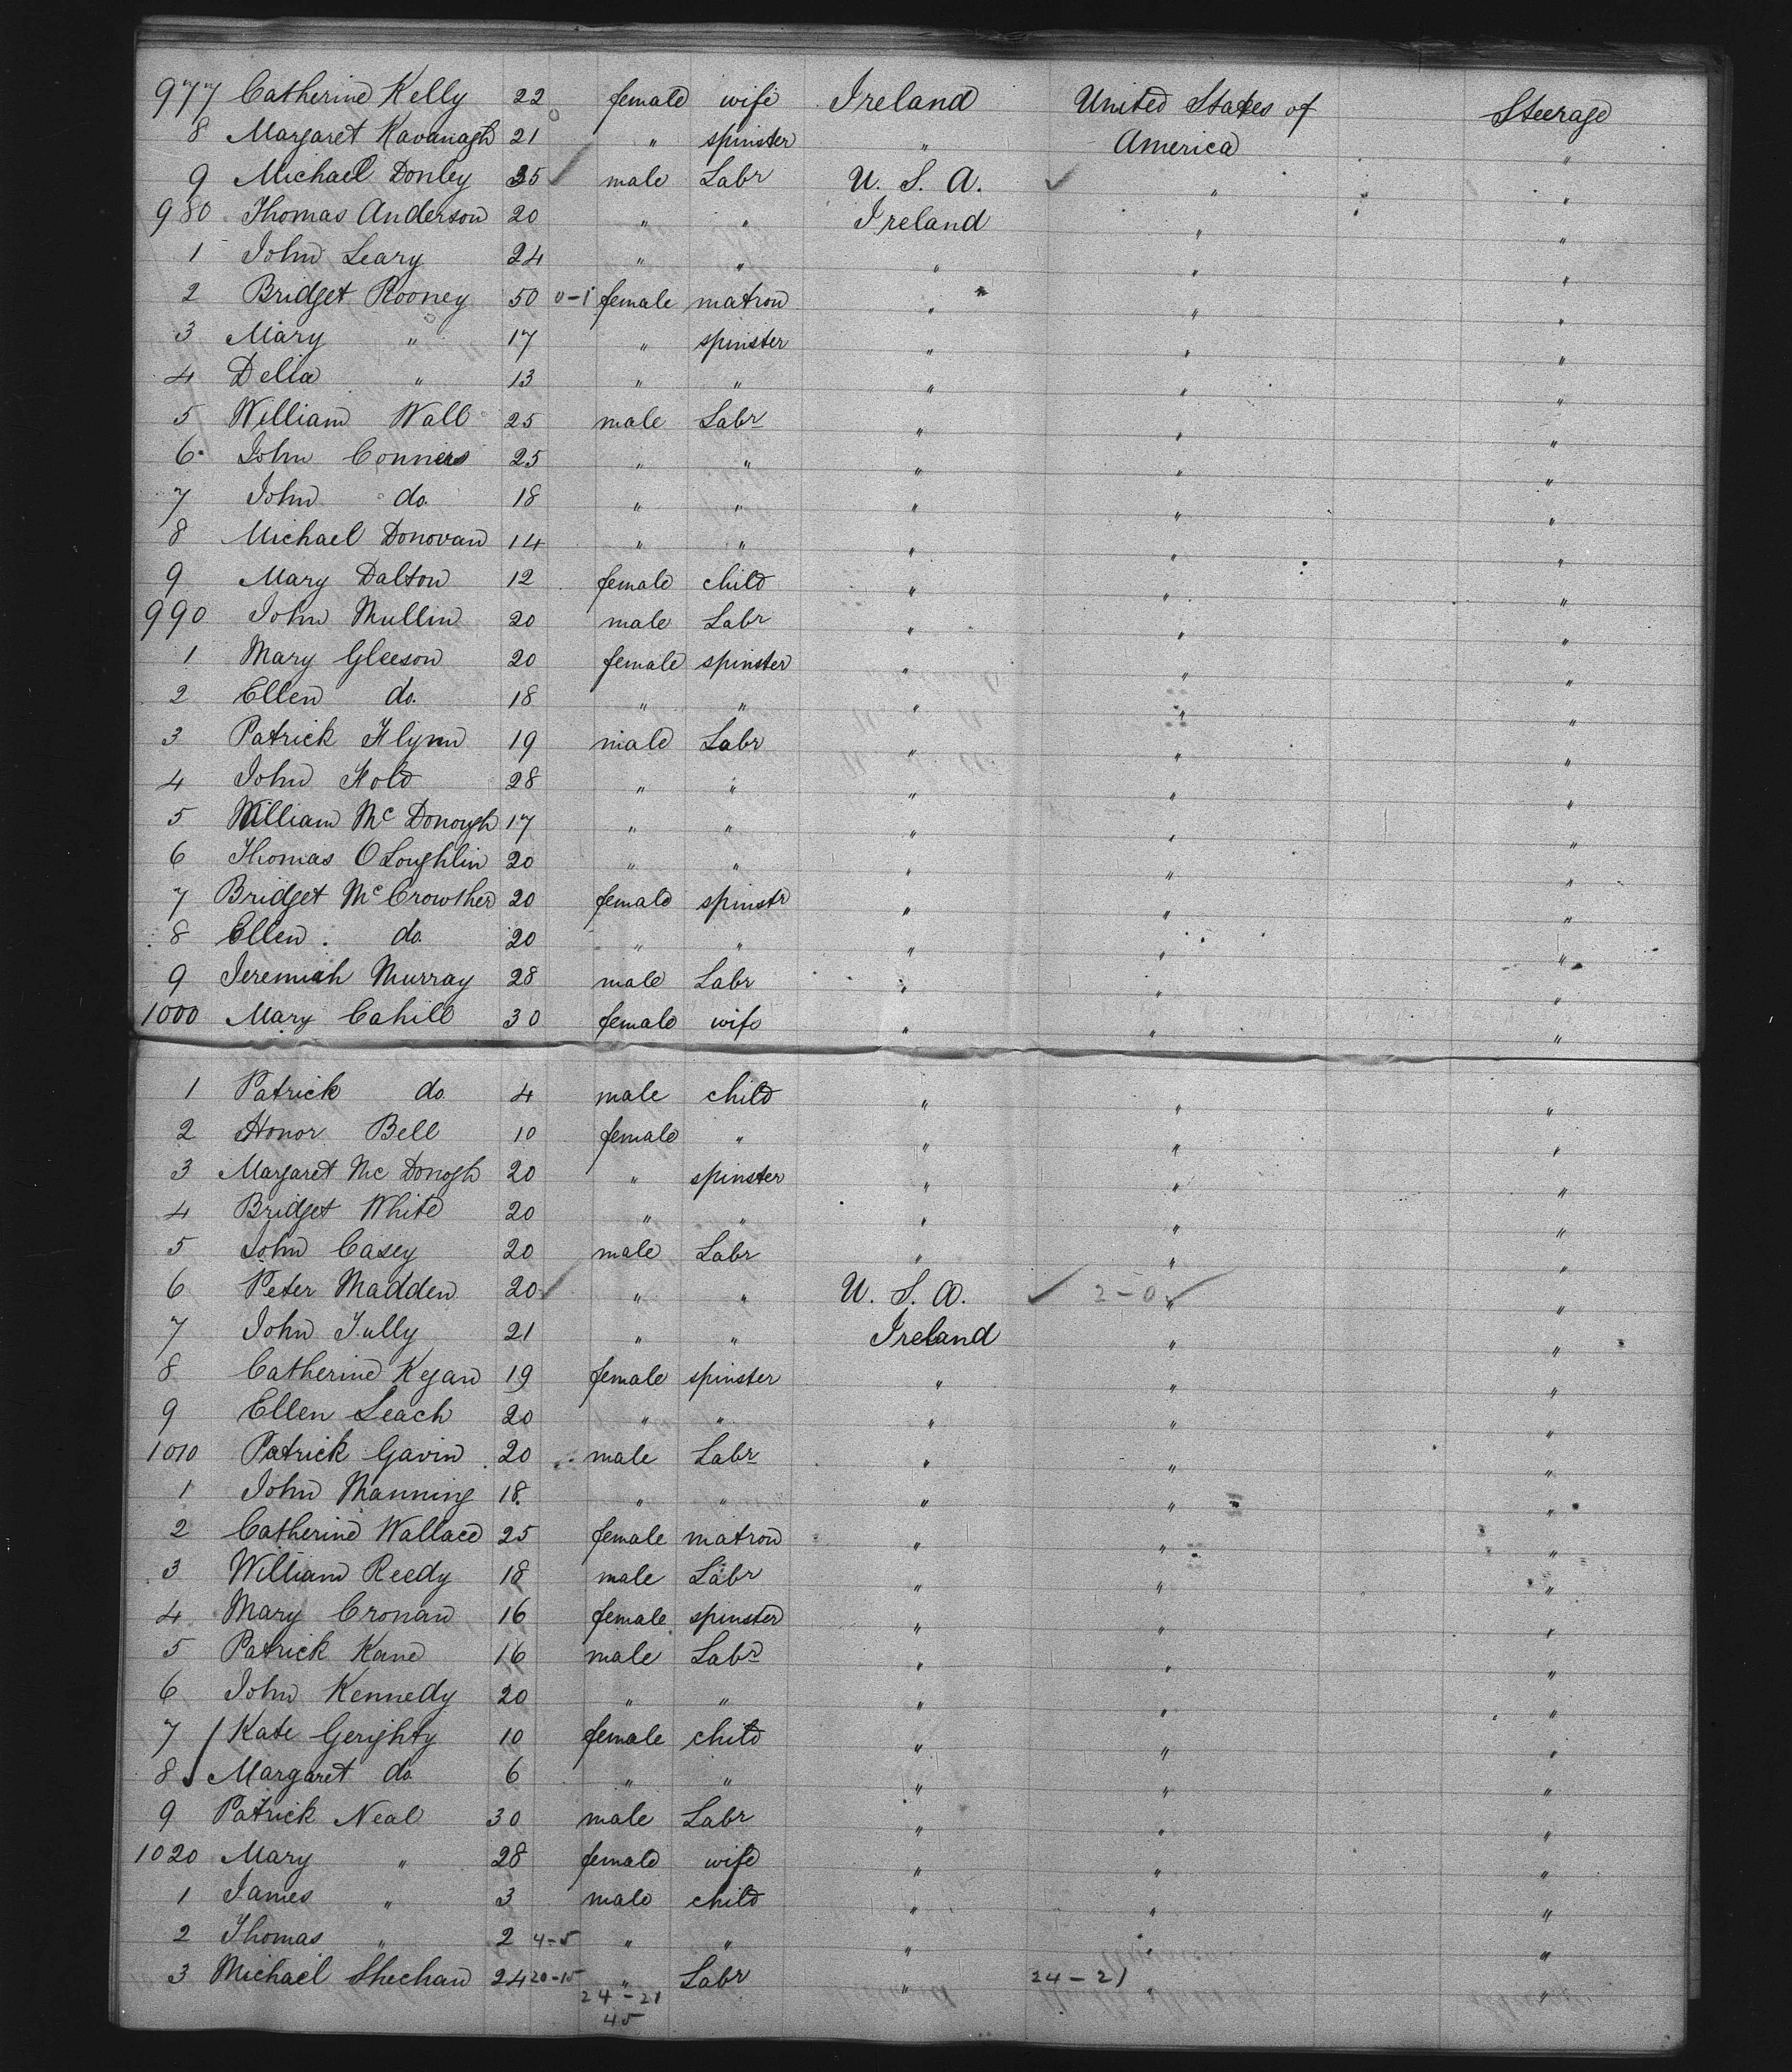 977 Catherine Kelly 22 female wife Ireland United States of Steerage
8 Margaret Kavanagh 21 " spinster " America "
9 Michael Donley 35 ✓ male Labr U. S. A. ✓ " "
980 Thomas Anderson 20 " " Ireland " "
1 John Leary 24 " " " " "
2 Bridget Rooney 50 0-1 female matron " " "
3 Mary " 17 " spinster " " "
4 Delia " 13 " " " " "
5 William Wall 25 male Labr " " "
6 John Conners 25 " " " " "
7 John do. 18 " " " " "
8 Michael Donovan 14 " " " " "
9 Mary Dalton 12 female child " " "
990 John Mullin 20 male Labr " " "
1 Mary Gleeson 20 female spinster " " "
2 Ellen do. 18 " " " " "
3 Patrick Flynn 19 male Labr " " "
4 John 28 " " " " "
5 William Mc Donough 17 " " " " "
6 Thomas O Loughlin 20 " " " " "
7 Bridget Mc Crowther 20 female spinstr " " "
8 Ellen do. 20 " " " " "
9 Jeremiah Murray 28 male Labr " " "
1000 Mary Cahill 30 female wife " " "
1 Patrick do. 4 male child " " "
2 Honor Bell 10 female " " " "
3 Margaret Mc Donogh 20 " spinster " " "
4 Bridget White 20 " " " " "
5 John Casey 20 male Labr " " "
6 Peter Madden 20 ✓ " " U. S. A. ✓ 2-0 ✓ " "
7 John Tully 21 " " Ireland " "
8 Catherine Kegan 19 female spinster " " "
9 Ellen Leach 20 " " " " "
1010 Patrick Gavin 20 male Labr " " "
1 John Manning 18 " " " " "
2 Catherine Wallace 25 female matron " " "
3 William Reedy 18 male Labr " " "
4 Mary Cronan 16 female spinster " " "
5 Patrick Kane 16 male Labr " " "
6 John Kennedy 20 " " " " "
7 Kate Gerighty 10 female child " " "
8 Margaret do. 6 " " " " "
9 Patrick Neal 30 male Labr " " "
1020 Mary " 28 female wife " " "
1 James " 3 male child " " "
2 Thomas " 2 4-5 " " " " "
3 Michael Sheehan 24 20-15 " Labr " 24-21 " "
24-21
45